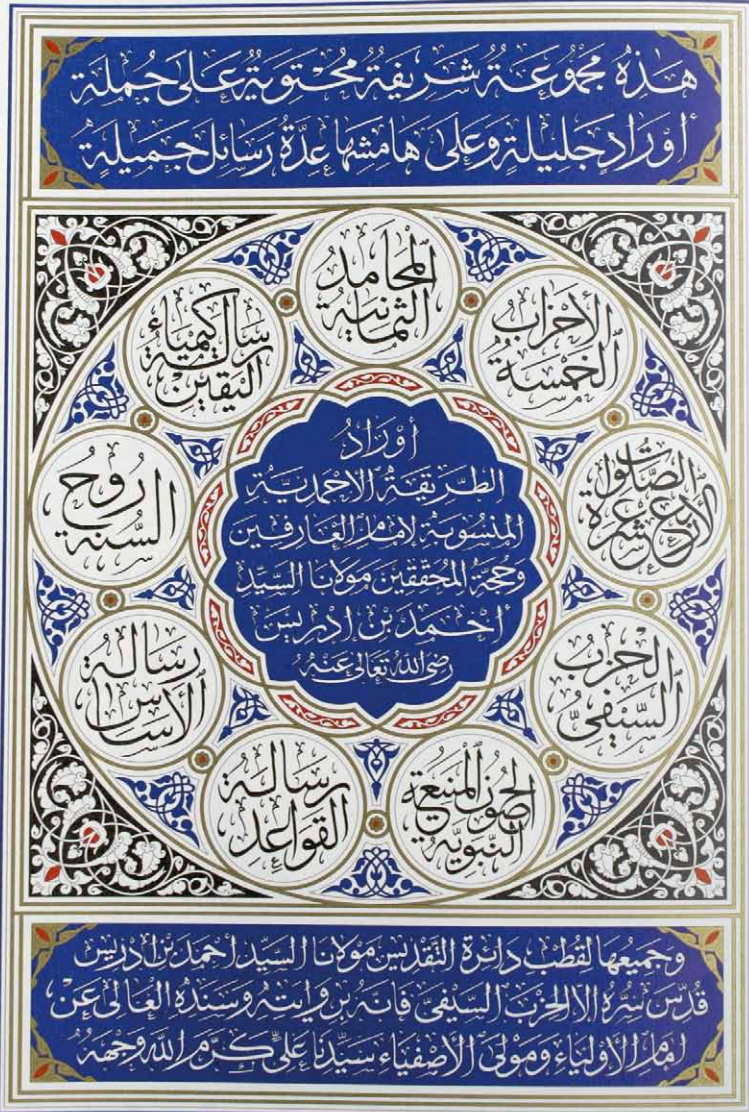 هَذِهِ مَجْمُوعَةٌ شَرِيفَةٌ مُحْتَوِيَةٌ عَلَى جُمْلَةِ
أَوْرَادٍ جَلِيلَةٍ وَعَلَى هَامِشِهَا عِدَّةُ رَسَائِلَ جَمِيلَةٍ
المحامد
الثمانية
الأحزاب
الخمسة
الصلوات
الأربع عشرة
الحزب
السيفي
الحصون المنيعة
النبوية
رسالة
القواعد
رسالة
الأساس
روح
السنة
رسالة كيمياء
اليقين
أوراد
الطريقة الأحمدية
المنسوبة لإمام العارفين
وحجة المحققين مولانا السيد
أحمد بن إدريس
رضي الله تعالى عنه
وجميعها لقطب دائرة التقديس مولانا السيد أحمد بن إدريس
قدس سره إلا الحزب السيفي فإنه بروايته وسنده العالي عن
إمام الأولياء ومولى الأصفياء سيدنا علي كرم الله وجهه